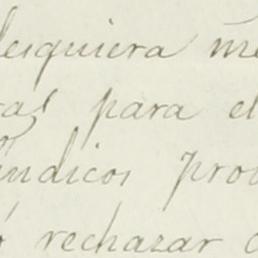 lesquiera me
ras para el
índicos pro
ó rechazar c